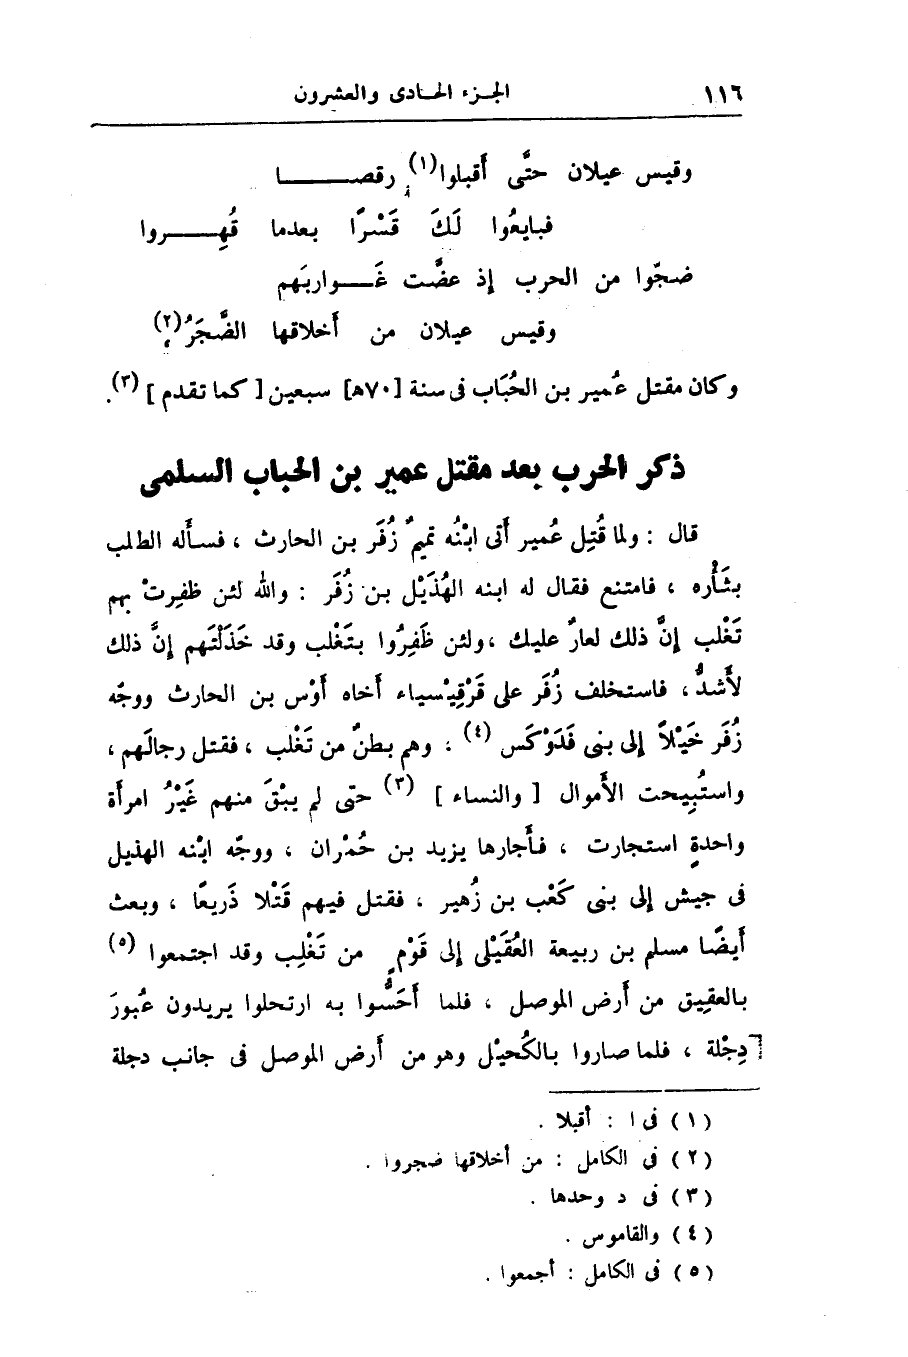 ١١٦
الجزء الحادى والعشرون
وقيس عيلان حتَّى أقبلوا(١) رقصــــا
فبايعُوا لَكَ قَسْرًا بعدما قُهِــــروا
ضجّوا من الحرب إذ عضَّت غَــــواربَهم
وقيس عيلان من أخلاقها الضَّجَرُ(٢)
وكان مقتل عُمير بن الحُبَاب فى سنة [٧٠هـ] سبعين [ كما تقدم ] (٣).
ذكر الحرب بعد مقتل عمير بن الحباب السلمى
قال : ولما قُتِل عُمير أتى ابْنُه تميمٌ زُفَر بن الحارث ، فسأله الطلب
بثَأْره ، فامتنع فقال له ابنه الهُذَيْل بن زُفَر : والله لئن ظفِرتْ بهم
تَغْلب إنَّ ذلك لعارٌ عليك ، ولئن ظَفِرُوا بتَغْلب وقد خَذَلْتَهم إنَّ ذلك
لأَشدُّ ، فاستخلف زُفَر على قَرْقِيْسياء أخاه أوْس بن الحارث ووجّه
زُفَر خَيْلاً إلى بنى فَدَوْكَس (٤) ، وهم بطنٌ من تَغْلب ، فقتل رجالَهم ،
واستُبِيحت الأموال [ والنساء ] (٣) حتى لم يبْقَ منهم غَيْرُ امرأة
واحدةٍ استجارت ، فأَجارها يزيد بن حُمْران ، ووجّه ابْنه الهذيل
فى جيش إلى بنى كَعْب بن زُهير ، فقتل فيهم قَتْلا ذَريعًا ، وبعث
أيضًا مسلم بن ربيعة العُقَيْلى إلى قَوْمٍ من تَغْلِب وقد اجتمعوا (٥)
بالعقِيق من أرض الموصل ، فلما أَحَسُّوا به ارتحلوا يريدون عُبورَ
دِجْلة ، فلما صاروا بالكُحيْل وهو من أرض الموصل فى جانب دجلة
(١) فى ا : أقبلا .
(٢) فى الكامل : من أخلاقها ضجروا .
(٣) فى د وحدها .
(٤) والقاموس .
(٥) فى الكامل : أجمعوا .